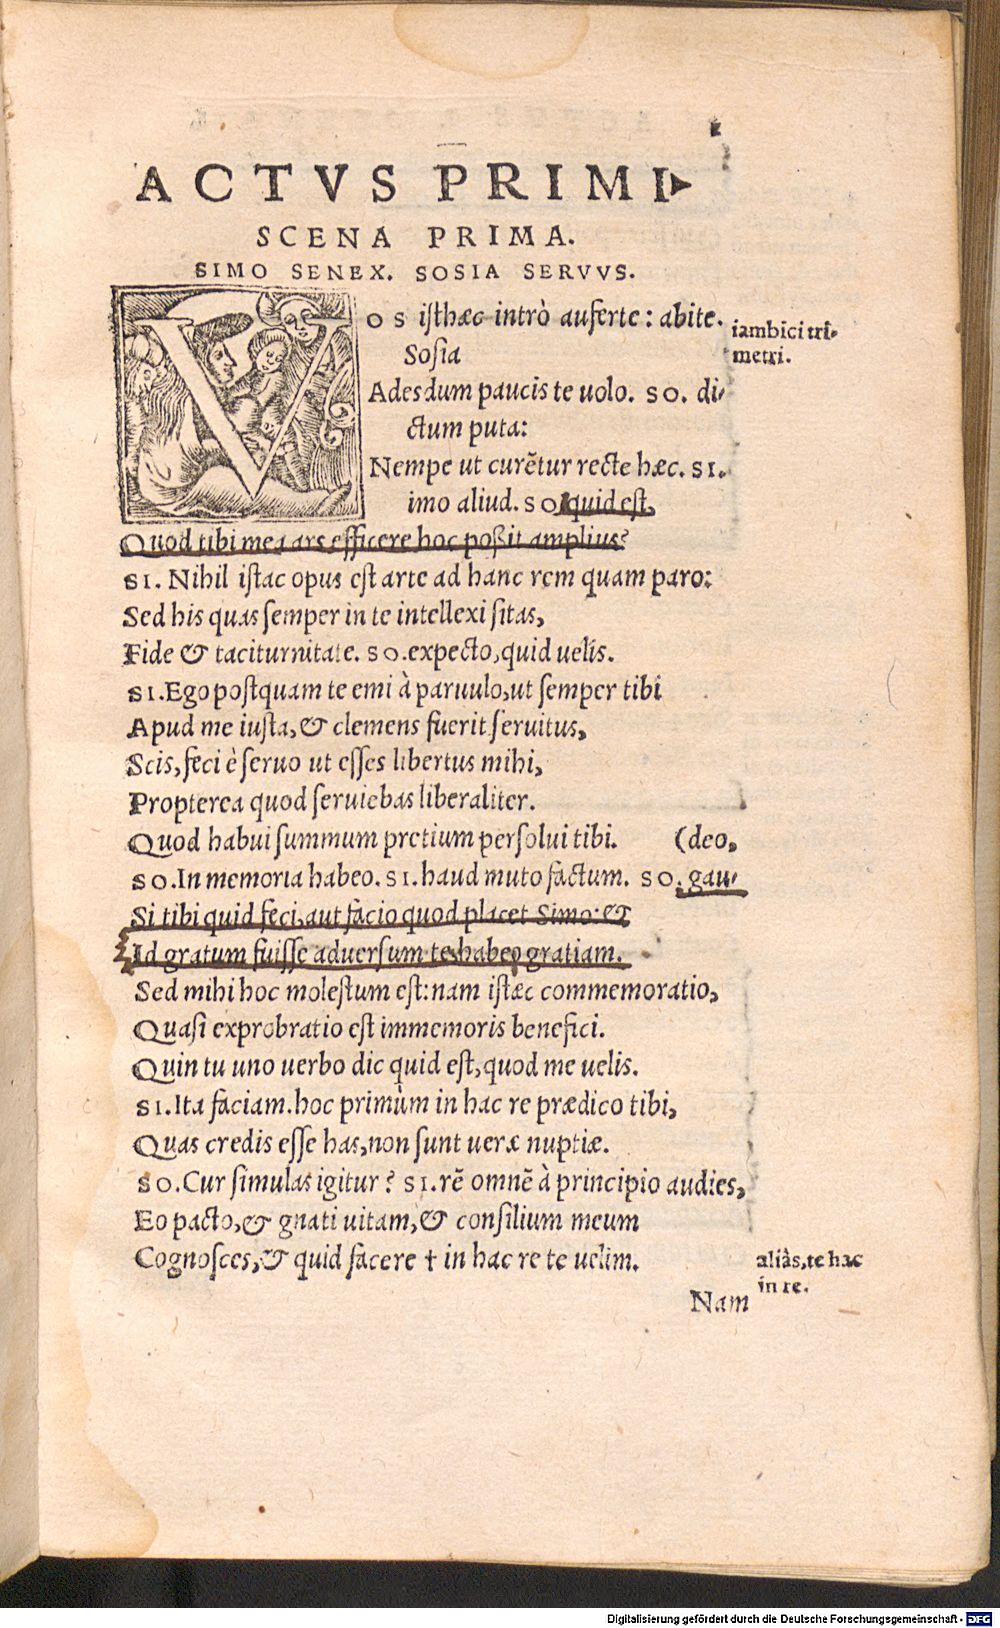 ACTVS PRIMI
SCENA PRIMA.
SIMO SENEX. SOSIA SERVVS.
VOS isthæc intrò auferte: abite.
Sosia
iambici tri-
metri.
Adesdum paucis te uolo. SO. di-
ctum puta:
Nempe ut curẽtur recte hæc. SI.
imo aliud. SO. quid est,
Quod tibi mea ars efficere hoc poßit amplius?
SI. Nihil istac opus est arte ad hanc rem quam paro:
Sed his quas semper in te intellexi sitas,
Fide & taciturnitate. SO. expecto, quid uelis.
SI. Ego postquam te emi à paruulo, ut semper tibi
Apud me iusta, & clemens fuerit seruitus,
Scis, feci è seruo ut esses libertus mihi,
Propterea quod seruiebas liberaliter.
Quod habui summum pretium persolui tibi. (deo,
SO. In memoria habeo. SI. haud muto factum. SO. gau-
Si tibi quid feci, aut facio quod placet Simo: &
Id gratum fuisse aduersum te, habeo gratiam.
Sed mihi hoc molestum est: nam istæc commemoratio,
Quasi exprobratio est immemoris benefici.
Quin tu uno uerbo dic quid est, quod me uelis.
SI. Ita faciam. hoc primùm in hac re prædico tibi,
Quas credis esse has, non sunt ueræ nuptiæ.
SO. Cur simulas igitur? SI. rẽ omnẽ à principio audies,
Eo pacto, & gnati uitam, & consilium meum
Cognosces, & quid facere † in hac re te uelim.
aliàs, te hac
in re.
Nam
Digitalisierung gefördert durch die Deutsche Forschungsgemeinschaft - DFG